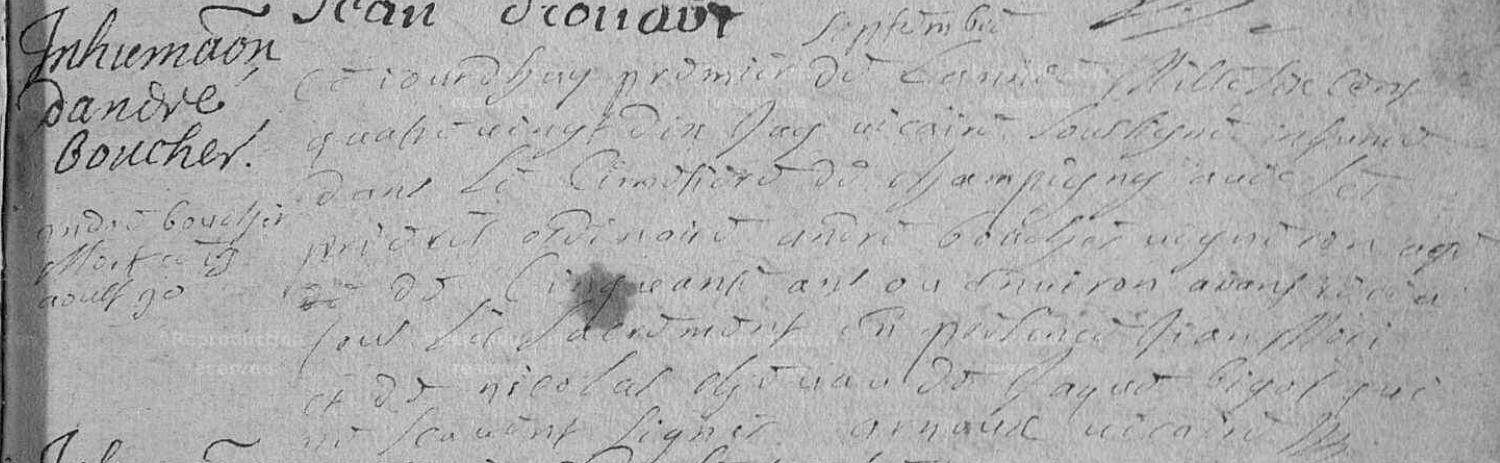 Jean Drouart
Inhumaon
dandre
Boucher.
andre boucher
mort le
aoust 90
septembre
Ce iourdhuy premier de Lannee Mille six cens
quatre vingt dix Jay vicaire soubsigné inhumé
dans le Cimetiere de champigny avec les
prieres ordinaire andre boucher vigneron agé
de Cinqueante ans ou environ aiant receu
tous les sacrement en presence Jean
et de nicolas de Jaque bigot qui
ne scavent signer arnaud vicaire